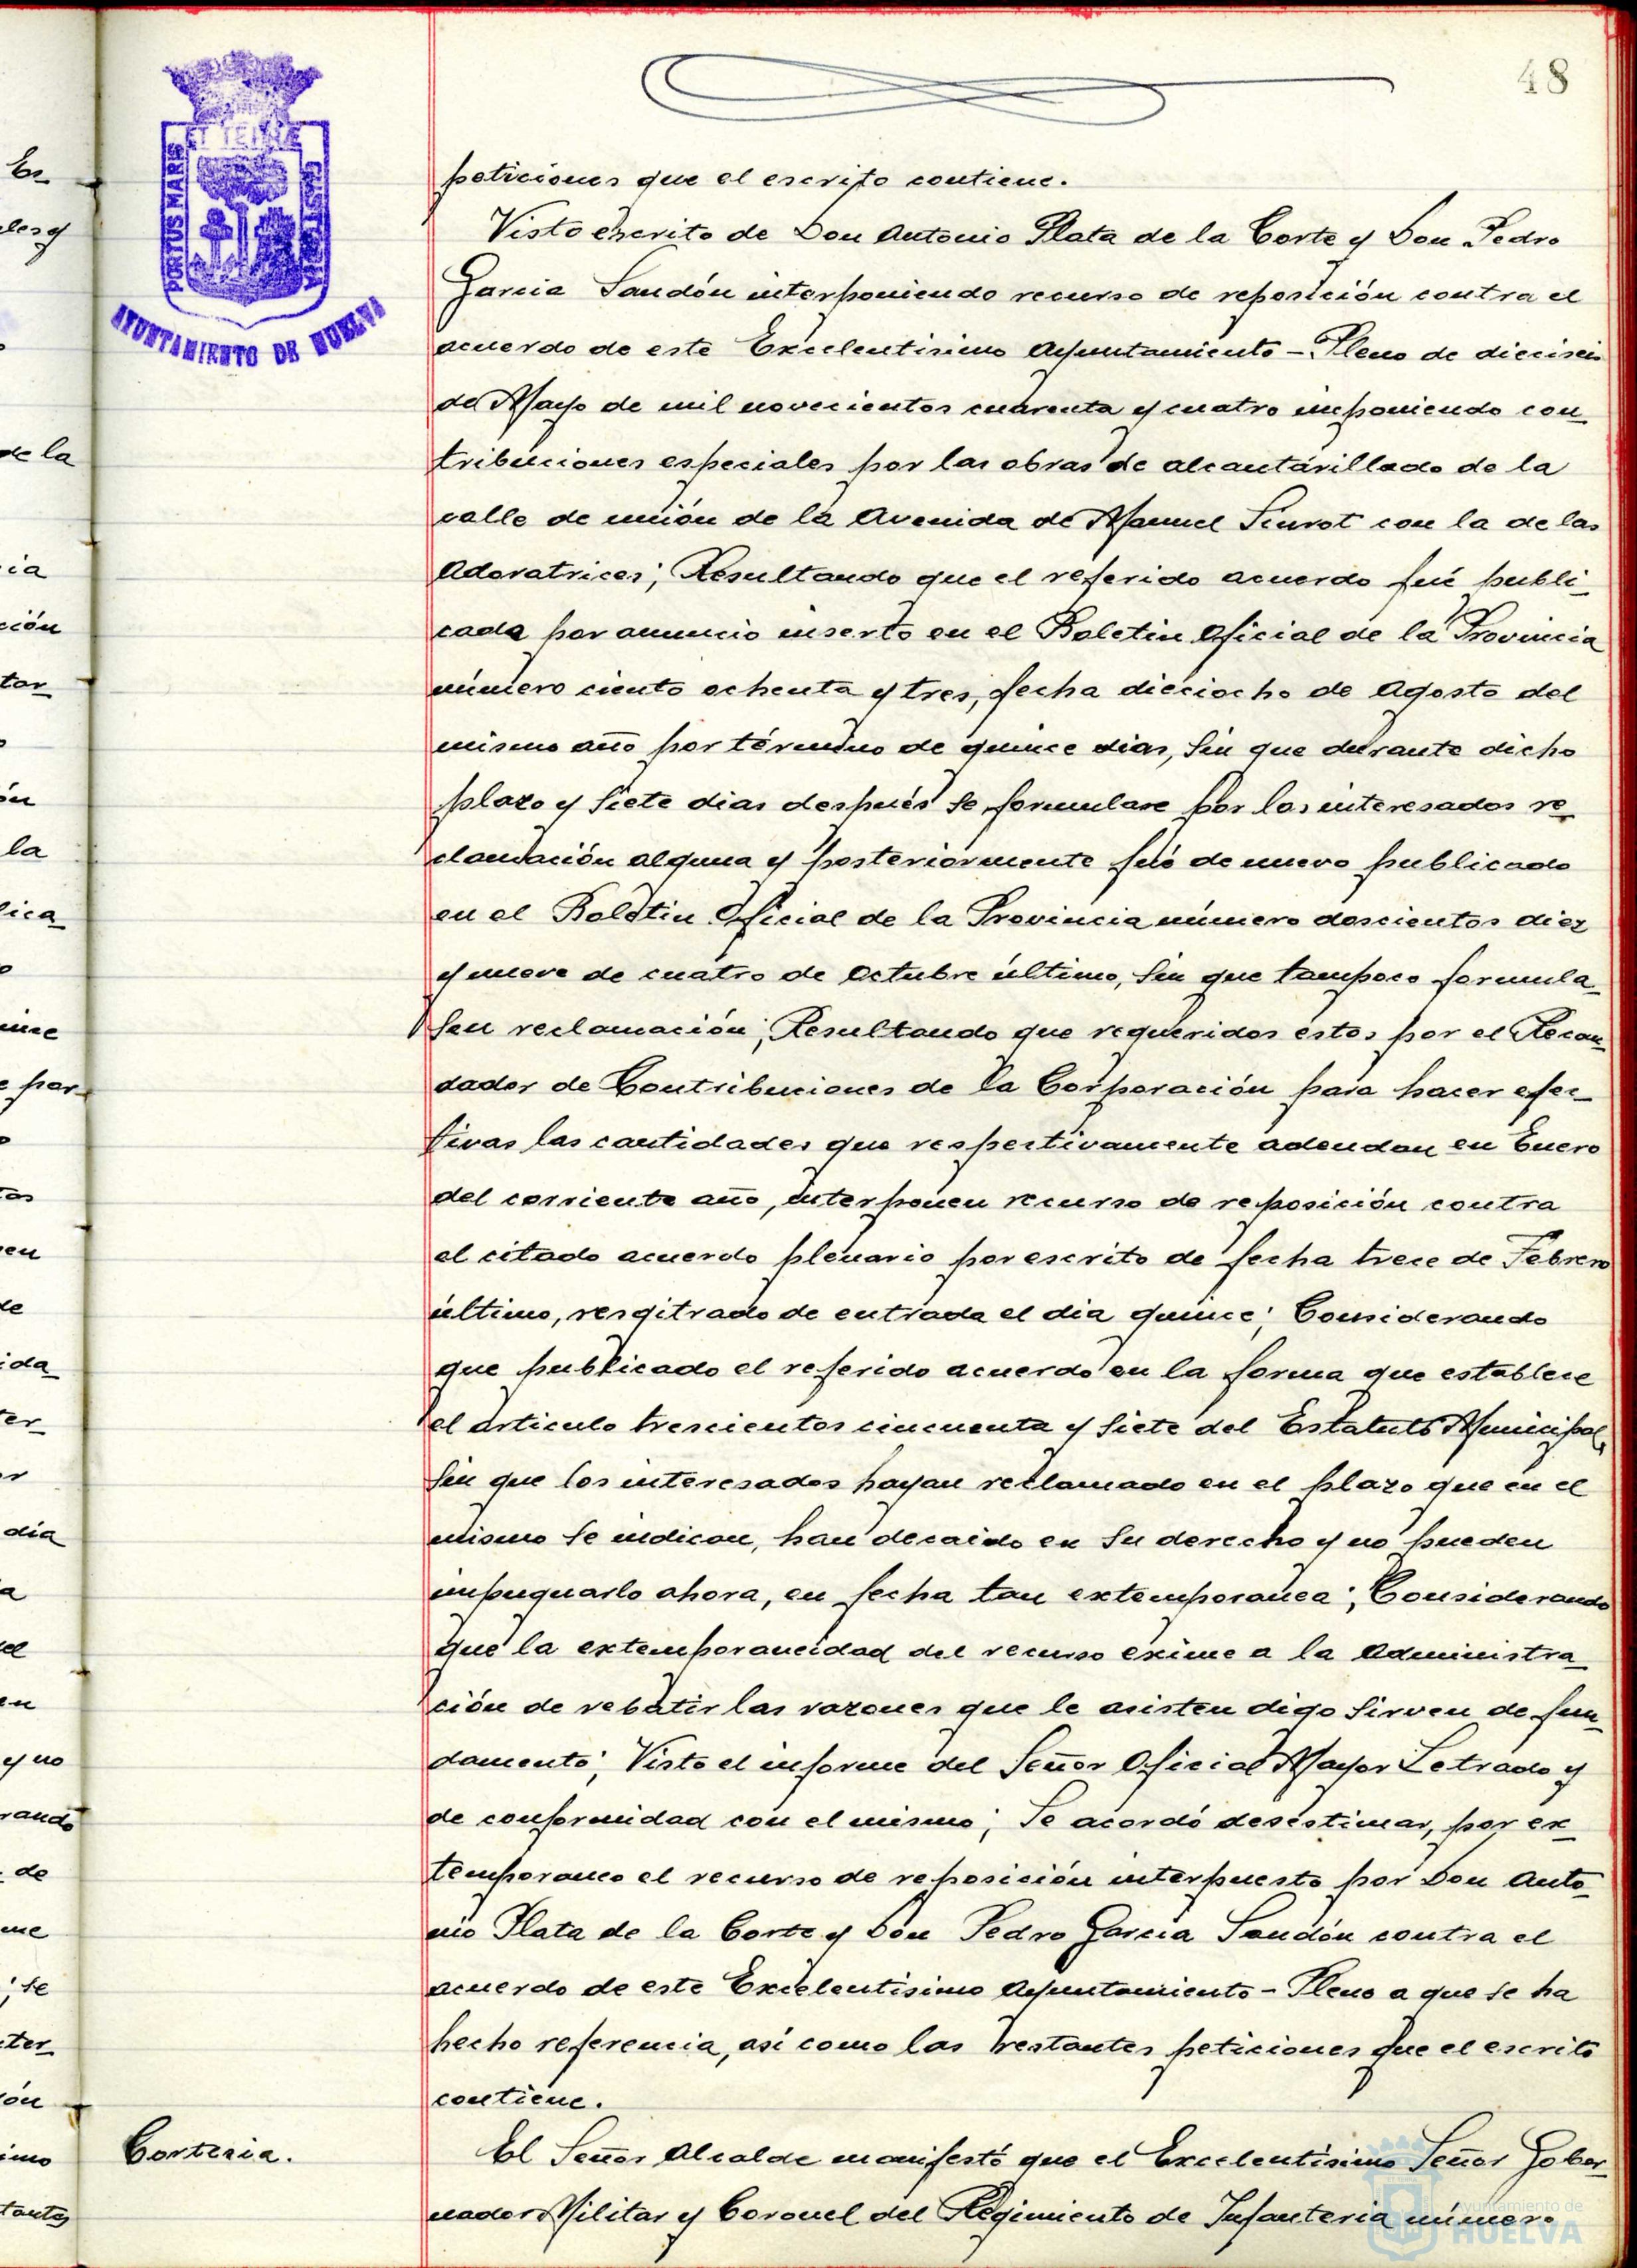 48
PORTUS MARIS
ET TERRÆ
CUSTODIA
AYUNTAMIENTO DE HUELVA
peticiones que el escrito contiene.
Visto escrito de Don Antonio Plata de la Corte y Don Pedro
Garcia Sandón interponiendo recurso de reposición contra el
acuerdo de este Excelentisimo Ayuntamiento - Pleno de dieciseis
de Mayo de mil novecientos cuarenta y cuatro imponiendo con_
tribuciones especiales por las obras de alcantarillado de la
calle de unión de la Avenida de Manuel Siurot con la de las
Adoratrices; Resultando que el referido acuerdo fué publi_
cada por anuncio inserto en el Boletin Oficial de la Provincia
número ciento ochenta y tres, fecha dieciocho de Agosto del
mismo año por término de quince dias, sin que durante dicho
plazo y siete dias después se formulase por los interesados re_
clamación alguna y posteriormente fué de nuevo publicado
en el Boletin Oficial de la Provincia número doscientos diez
y nueve de cuatro de Octubre último, sin que tampoco formula_
sen reclamación; Resultando que requeridos éstos por el Recau_
dador de Contribuciones de la Corporación para hacer efec_
tivas las cantidades que respectivamente adeudan en Enero
del corriente año, interponen recurso de reposición contra
el citado acuerdo plenario por escrito de fecha trece de Febrero
último, resgitrado de entrada el dia quince; Considerando
que publicado el referido acuerdo en la forma que establece
el artículo trescientos cincuenta y siete del Estatuto Municipal,
sin que los interesados hayan reclamado en el plazo que en el
mismo se indican, han decaido en su derecho y no pueden
impugnarlo ahora, en fecha tan extemporanea; Considerando
que la extemporaneidad del recurso exime a la Administra_
ción de rebatir las razones que le asisten digo sirven de fun_
damento; Visto el informe del Señor Oficial Mayor Letrado y
de conformidad con el mismo; Se acordó desestimar, por ex_
temporaneo el recurso de reposición interpuesto por Don Anto_
nio Plata de la Corte y Don Pedro Garcia Sandón contra el
acuerdo de este Excelentisimo Ayuntamiento - Pleno a que se ha
hecho referencia, así como las restantes peticiones que el escrito
contiene.
Cortesia.
El Señor Alcalde manifestó que el Excelentísimo Señor Gober_
nador Militar y Coronel del Regimiento de Infanteria número
Ayuntamiento de
HUELVA